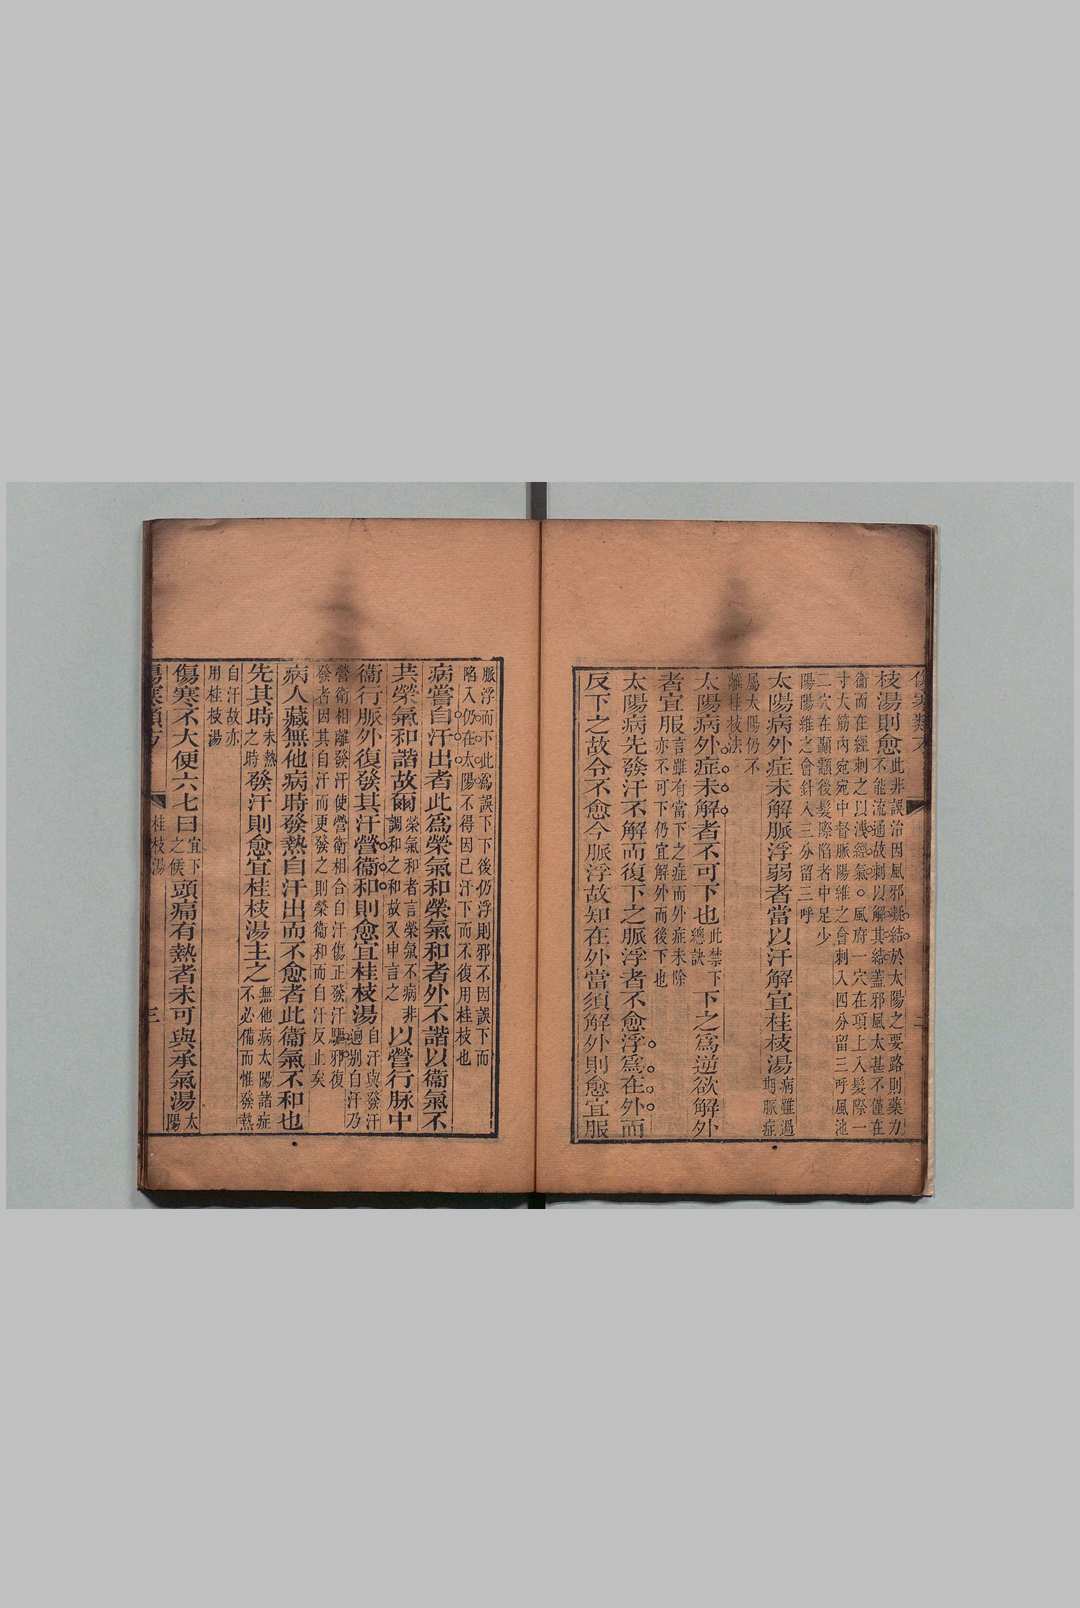 枝湯則愈此非誤治因風邪凝結於太陽之要路則藥力
不能流通故刺以解其結蓋邪風太甚不僅在
衞而在經刺之以洩經氣。風府一穴在項上入髮際一
寸大筋內宛宛中督脈陽維之會刺入四分留三呼風池
二穴在顳顬後髮際陷者中足少
陽陽維之會針入三分留三呼
太陽病外症未解脈浮弱者當以汗解宜桂枝湯病雖過
期脈症
屬太陽仍不
離桂枝法
太陽病外症未解者不可下也此禁下
總訣下之爲逆欲解外
者宜服言雖有當下之症而外症未除
亦不可下仍宜解外而後下也
太陽病先發汗不解而復下之脈浮者不愈浮爲在外而
反下之故令不愈今脈浮故知在外當須解外則愈宜服
脈浮而下此爲誤下下後仍浮則邪不因誤下而
陷入仍在太陽不得因已汗下而不復用桂枝也
病嘗自汗出者此爲榮氣和榮氣和者外不諧以衞氣不
共榮氣和諧故爾榮氣和者言榮氣不病非
調和之和故又申言之以營行脉中
衞行脈外復發其汗營衞和則愈宜桂枝湯自汗與發汗
迥別自汗乃
營衛相離發汗使營衛相合自汗傷正發汗驅邪復
發者因其自汗而更發之則榮衞和而自汗反止矣
病人藏無他病時發熱自汗出而不愈者此衞氣不和也
先其時未熱
之時發汗則愈宜桂枝湯主之無他病太陽諸症
不必備而惟發熱
自汗故亦
用桂枝湯
傷寒不大便六七日宜下
之候頭痛有熱者未可與承氣湯太
陽
傷寒類方
桂枝湯
三